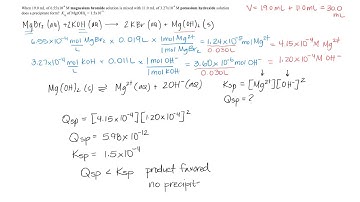 When 19.0 mL of 6.55x10⁻⁴ M magnesium bromide solution is mixed with 11.0 mL of 3.27x10⁻⁴ M potassium hydroxide solution
does a precipitate form? Ksp of Mg(OH)₂ = 1.5x10⁻¹¹
V = 19.0 mL + 11.0 mL = 30.0 mL
MgBr₂ (aq) + 2KOH (aq) → 2 KBr (aq) + Mg(OH)₂ (s)
6.55×10⁻⁴ mol MgBr₂ / L x 0.019L x 1 mol Mg²⁺ / 1 mol MgBr₂ = 1.24×10⁻⁵ mol Mg²⁺ / 0.030L = 4.15×10⁻⁴ M Mg²⁺
3.27×10⁻⁴ mol KOH / L x 0.011L x 1 mol OH⁻ / 1 mol KOH = 3.60×10⁻⁶ mol OH⁻ / 0.030L = 1.20×10⁻⁴ M OH⁻
Mg(OH)₂ (s) ⇌ Mg²⁺ (aq) + 2OH⁻ (aq) Ksp = [Mg²⁺][OH⁻]²
Qsp = ?
Qsp = [4.15×10⁻⁴][1.20×10⁻⁴]²
Qsp = 5.98×10⁻¹²
Ksp = 1.5×10⁻¹¹
Qsp < Ksp product favored
no precipit